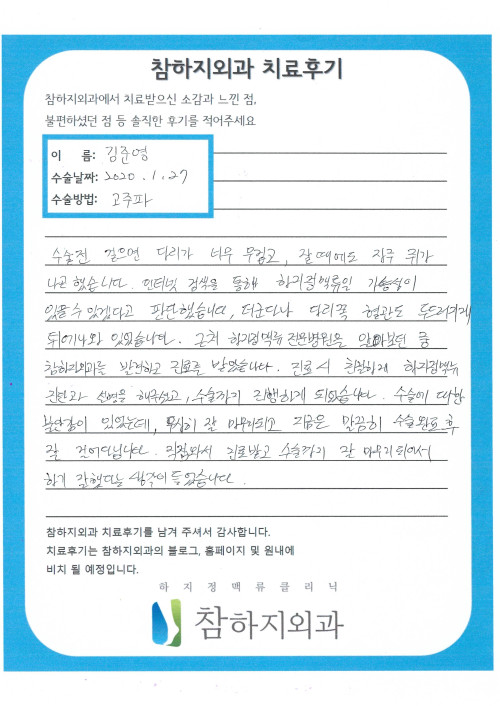 참하지외과 치료후기
참하지외과에서 치료받으신 소감과 느낀 점,
불편하셨던 점 등 솔직한 후기를 적어주세요
이 름: 김준영
수술날짜: 2020.1.27
수술방법: 고주파
수술전 걸으면 다리가 너무 무겁고, 잘때에도 자주 쥐가
나곤 했습니다. 인터넷 검색을 통해 하지정맥류일 가능성이
있을수 있겠다고 판단했습니다, 더군다나 다리쪽 혈관도 두드러지게
튀어나와 있었습니다. 근처 하지정맥류 전문병원을 알아보던 중
참하지외과를 발견하고 진료를 받았습니다. 진료시 친절하게 하지정맥류
진단과 설명을 해주셨고, 수술까지 진행하게 되었습니다. 수술에 대한
불안감이 있었는데, 무사히 잘 마무리되고 지금은 말끔히 수술완료 후
잘 걸어다닙니다. 직접와서 진료받고 수술까지 잘 마무리 되어서
하기 잘했다는 생각이 들었습니다.
참하지외과 치료후기를 남겨 주셔서 감사합니다.
치료후기는 참하지외과의 블로그, 홈페이지 및 원내에
비치 될 예정입니다.
하지정맥류클리닉
참하지외과